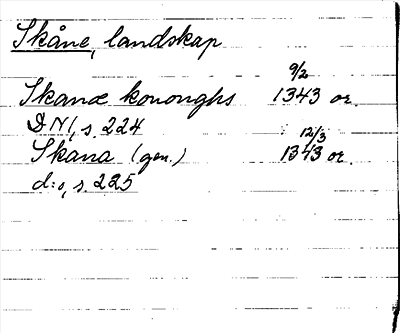 Skåne, landskap
9/2
Skanæ kononghs 1343 or.
DN1, s. 224
12/3
Skana (gen.) 1343 or.
d:o, s. 225